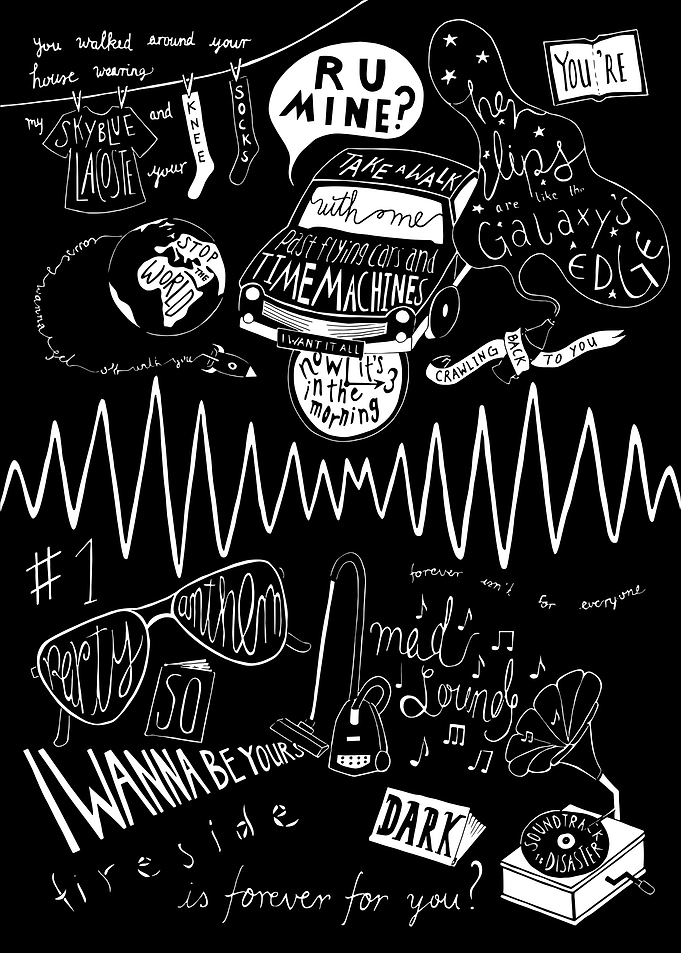 you walked around your
house wearing
my
SKYBLUE
LACOSTE
and
your
KNEE
SOCKS
R U
MINE?
YOU'RE
her
lips
are like the
Galaxy's
EDGE
TAKE A WALK
with me
past flying cars and
TIME MACHINES
I WANT IT ALL
now it's 3
in the
morning
STOP
THE
WORLD
cause
I wanna get
off with you
CRAWLING BACK TO YOU
#1
party anthem
SO
I WANNA BE YOURS
forever isn't for everyone
mad
Sounds
DARK
SOUNDTRACK
to DISASTER
fireside
is forever for you?